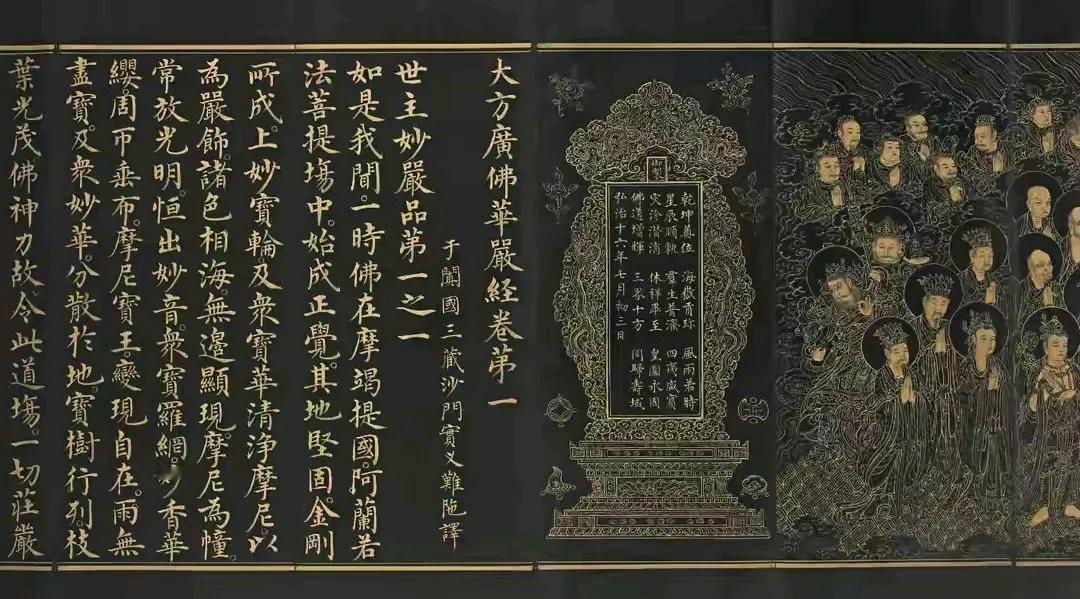 御製
乾坤奠位 海嶽貢珎 風雨若時
星辰順軌 羣生普濟 四夷咸賓
灾沴潛消 休祥畢至 皇圖永固
佛道增輝 三界十方 同歸壽域
弘治十六年七月初三日
大方廣佛華嚴經卷第一
于闐國三藏沙門實叉難陁譯
世主妙嚴品第一之一
如是我聞。一時佛在摩竭提國。阿蘭若
法菩提場中。始成正覺。其地堅固。金剛
所成。上妙寶輪及衆寶華清淨摩尼以
為嚴飾。諸色相海無邊顯現。摩尼為幢。
常放光明。恒出妙音。衆寶羅網。妙香華
纓。周帀垂布。摩尼寶王。變現自在。雨無
盡寶。及衆妙華。分散於地。寶樹行列。枝
葉光茂佛神力故。令此道場。一切莊嚴